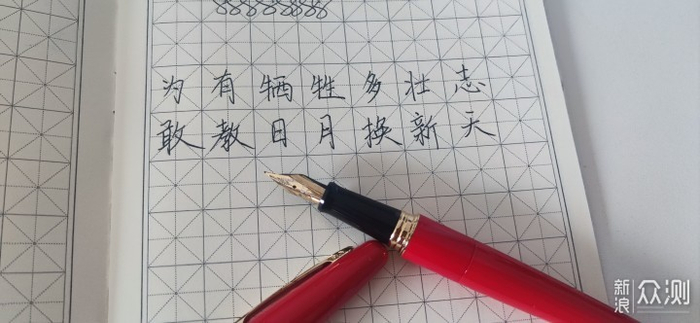 88888888
为有牺牲多壮志
敢教日月换新天
新浪众测